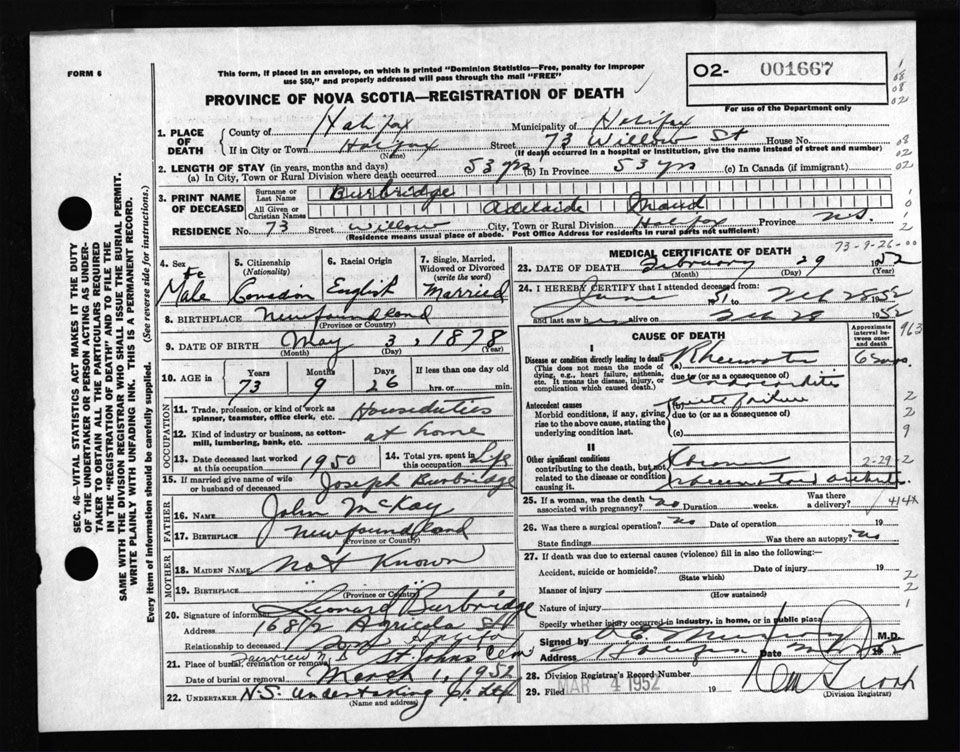 FORM 6
This form, if placed in an envelope, on which is printed "Dominion Statistics—Free, penalty for improper
use $50," and properly addressed will pass through the mail "FREE"
02- 001667
For use of the Department only
PROVINCE OF NOVA SCOTIA—REGISTRATION OF DEATH
1. PLACE OF DEATH { County of Halifax Municipality of Halifax
If in City or Town Halifax (Name) Street 73 Willow St House No.
(If death occurred in a hospital or institution, give the name instead of street and number)
2. LENGTH OF STAY (in years, months and days)
(a) In City, Town or Rural Division where death occurred 53 yrs (b) In Province 53 yrs (c) In Canada (if immigrant)
3. PRINT NAME OF DECEASED { Surname or Last Name Burbridge
All Given or Christian Names Adelaide Maud
RESIDENCE No. 73 Street Willow City, Town or Rural Division Halifax Province N.S.
(Residence means usual place of abode. Post Office Address for residents in rural parts not sufficient)
SEC. 46—VITAL STATISTICS ACT MAKES IT THE DUTY
OF THE UNDERTAKER OR PERSON ACTING AS UNDER-
TAKER TO OBTAIN ALL THE PARTICULARS REQUIRED
IN THE "REGISTRATION OF DEATH" AND TO FILE THE
SAME WITH THE DIVISION REGISTRAR WHO SHALL ISSUE THE BURIAL PERMIT.
WRITE PLAINLY WITH UNFADING INK. THIS IS A PERMANENT RECORD.
Every item of information should be carefully supplied. (See reverse side for instructions.)
4. Sex Fe Male
5. Citizenship (Nationality) Canadian
6. Racial Origin English
7. Single, Married, Widowed or Divorced (write the word) Married
8. BIRTHPLACE Newfoundland
(Province or Country)
9. DATE OF BIRTH May 3, 1878
(Month) (Day) (Year)
10. AGE in { Years 73 Months 9 Days 26 If less than one day
hrs. or min.
OCCUPATION
11. Trade, profession, or kind of work as spinner, teamster, office clerk, etc. Houseduties
12. Kind of industry or business, as cotton-mill, lumbering, bank, etc. at home
13. Date deceased last worked at this occupation 1950 14. Total yrs. spent in this occupation Life
15. If married give name of wife or husband of deceased Joseph Burbridge
FATHER
16. NAME John McKay
17. BIRTHPLACE Newfoundland
(Province or Country)
MOTHER
18. MAIDEN NAME Not Known
19. BIRTHPLACE " "
(Province or Country)
20. Signature of informant Leonard Burbridge
Address 168 1/2 Agricola St
Relationship to deceased Son Halifax
21. Place of burial, cremation or removal Fairview N.S. St. Johns Cem
Date of burial or removal March 1, 1952
22. UNDERTAKER N.S. Undertaking Co. Ltd
(Name and address)
MEDICAL CERTIFICATE OF DEATH
73-9-26-00
23. DATE OF DEATH February 29 1952
(Month) (Day) (Year)
24. I HEREBY CERTIFY that I attended deceased from:
June 1951 to Feb 28 1952
and last saw h alive on Feb 28 1952
CAUSE OF DEATH
Approximate interval between onset and death
I
Disease or condition directly leading to death (a) Rheumatic
(This does not mean the mode of dying, e.g., heart failure, asthenia, etc. It means the disease, injury, or complication which caused death.)
due to (or as a consequence of) endocarditis
Antecedent causes (b)
Morbid conditions, if any, giving rise to the above cause, stating the underlying condition last.
due to (or as a consequence of)
(c)
II
Other significant conditions contributing to the death, but not related to the disease or condition causing it.
Chronic
rheumatoid arthritis
2-29-2
25. If a woman, was the death associated with pregnancy? no Duration weeks. Was there a delivery?
26. Was there a surgical operation? no Date of operation 19
State findings Was there an autopsy? no
27. If death was due to external causes (violence) fill in also the following:—
Accident, suicide or homicide? Date of injury 19
(State which)
Manner of injury
(How sustained)
Nature of injury
Specify whether injury occurred in industry, in home, or in public place
Signed by M.D.
Address Halifax Date 1952
28. Division Registrar's Record Number
29. Filed MAR 4 1952 19
(Division Registrar)